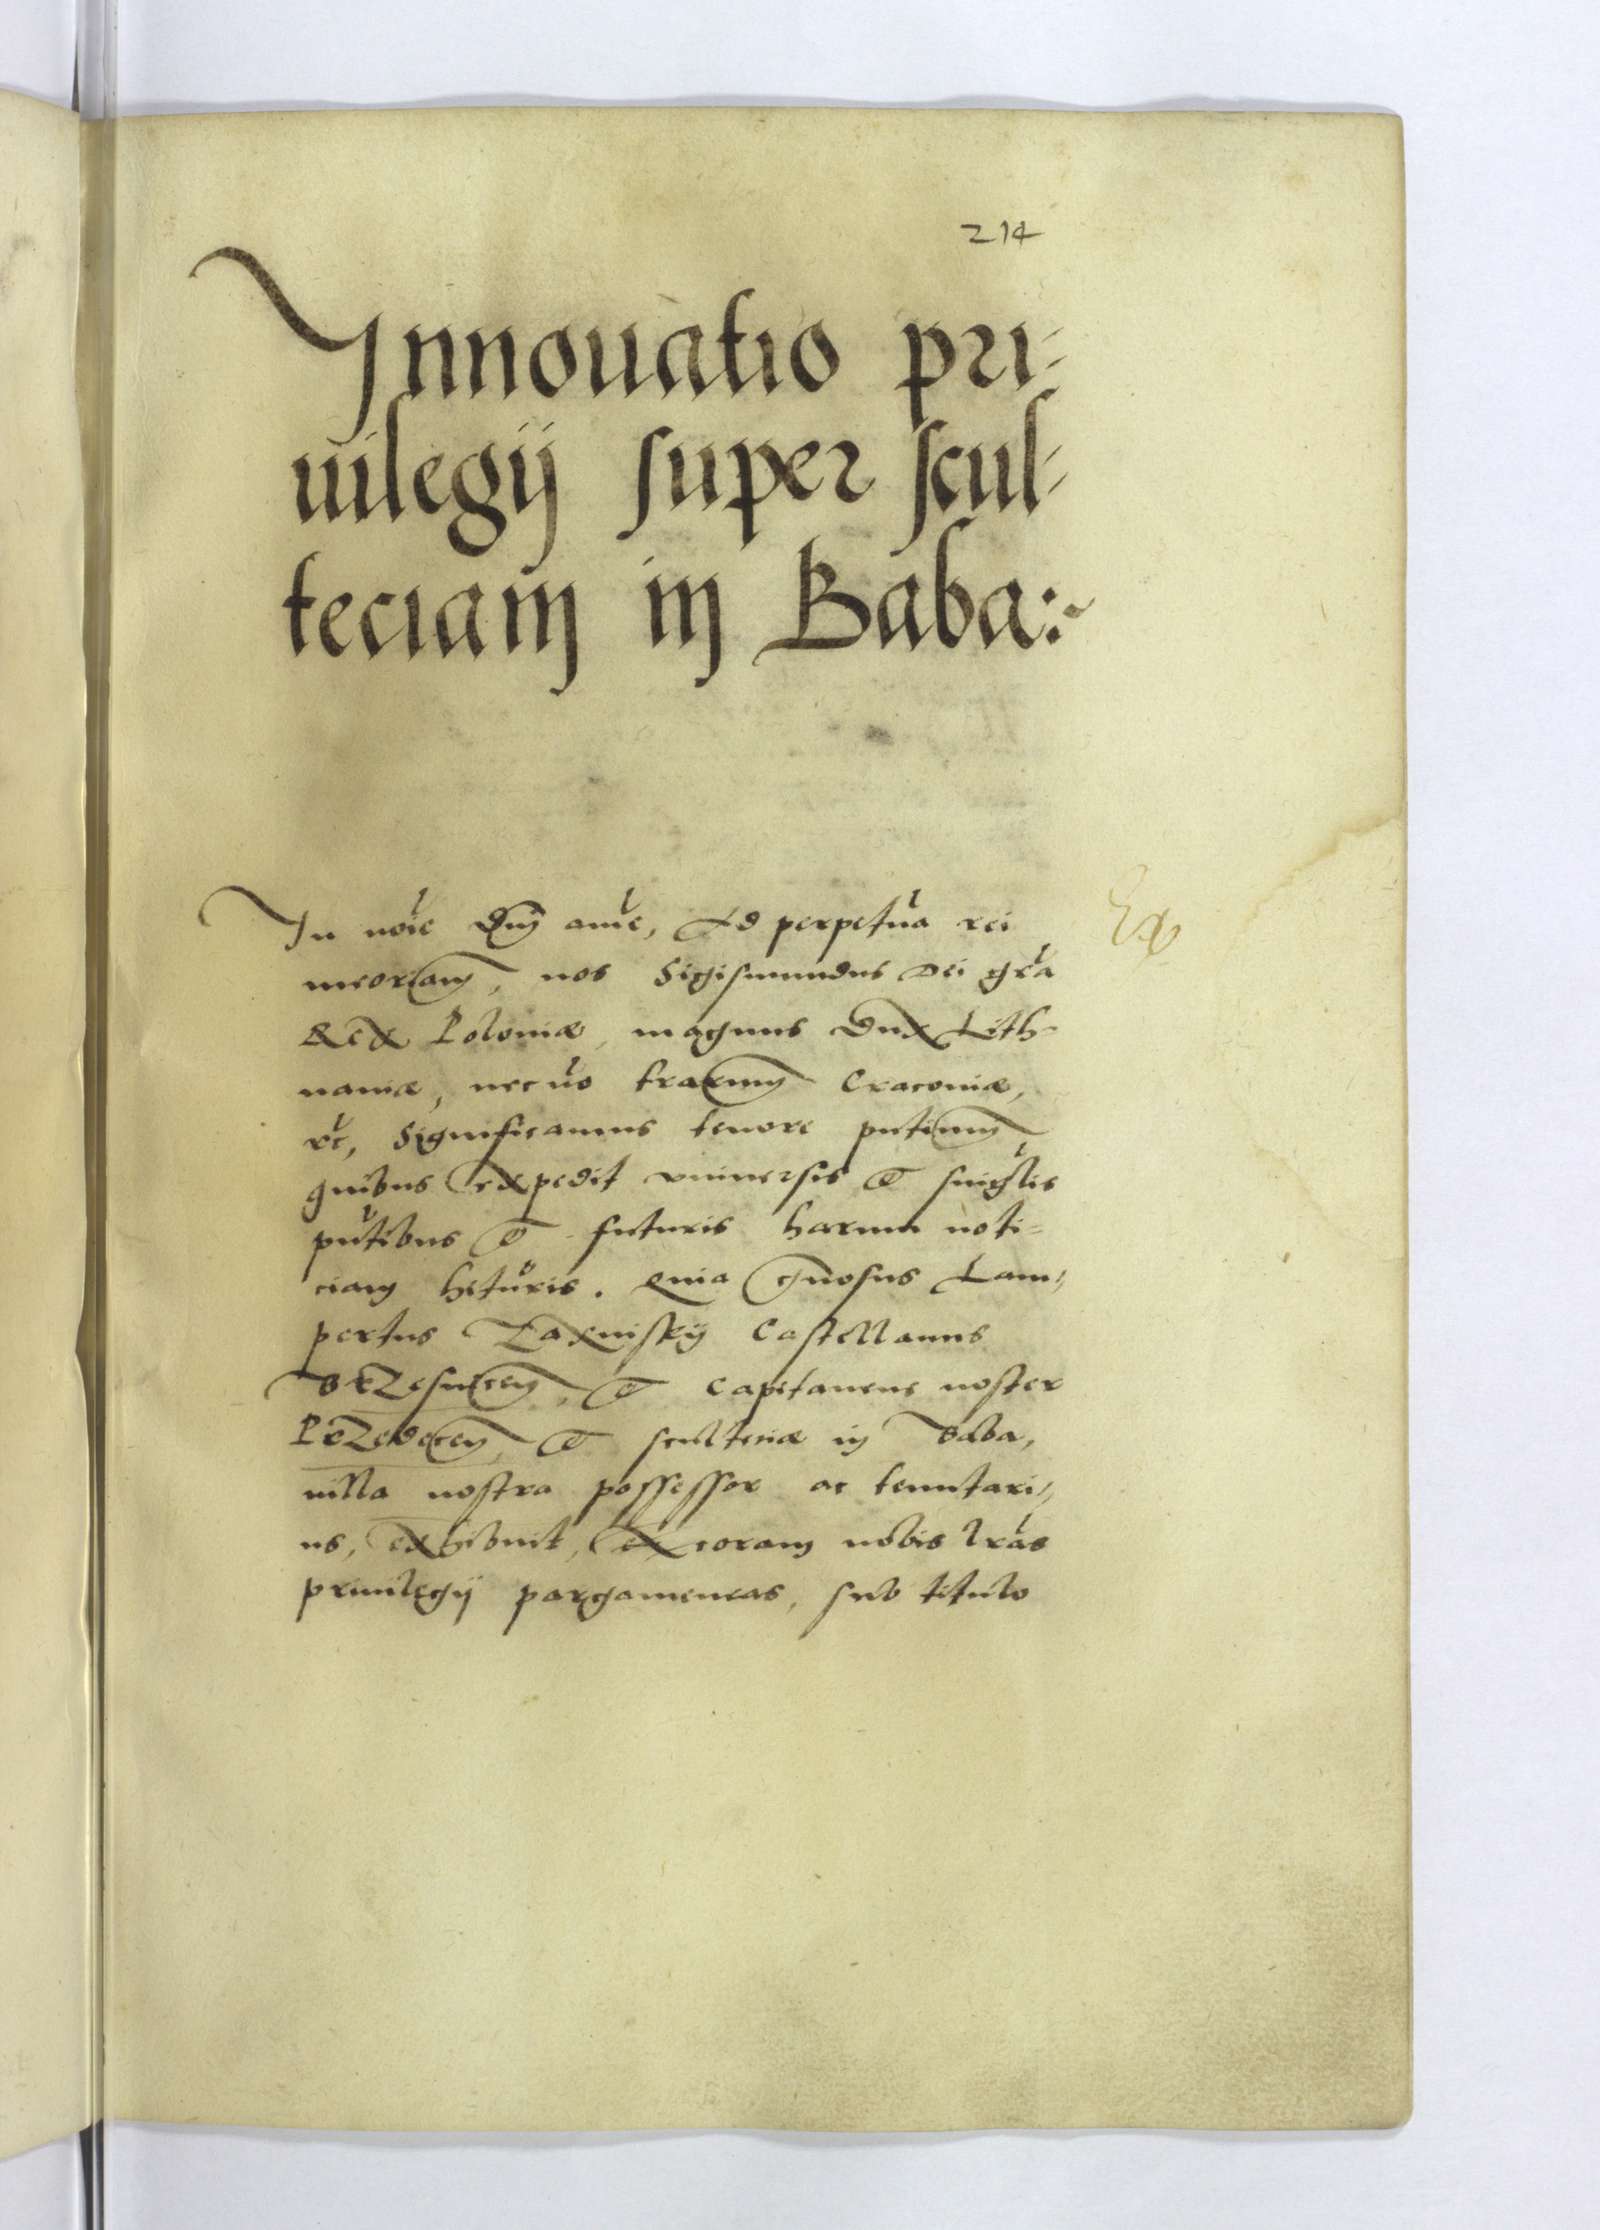 214
Innouatio pri-
uilegij super scul-
teciam in Baba:~
In noīe Dnj ame, Ad perpetua rei
meoriam, nos Sigismundus Dei gra
Rex Poloniæ, magnus Dux Lith-
uaniæ, nec no trarum Craconiæ,
etc, Significamus tenore pntium
quibus expedit vniuersis et singlis
pntibus et futuris harum noti=
ciam heturis. Quia Gnosus Lam,
pertus Zarnisky Castellanus
BrZesucen, et Capetaneus noster
PrZedecen, et scultetiæ in Baba,
uilla nostra possessor ac tenutari,
us, exhibuit, ex coram nobis lras
priuilegij pargameneas, sub titulo
Ex